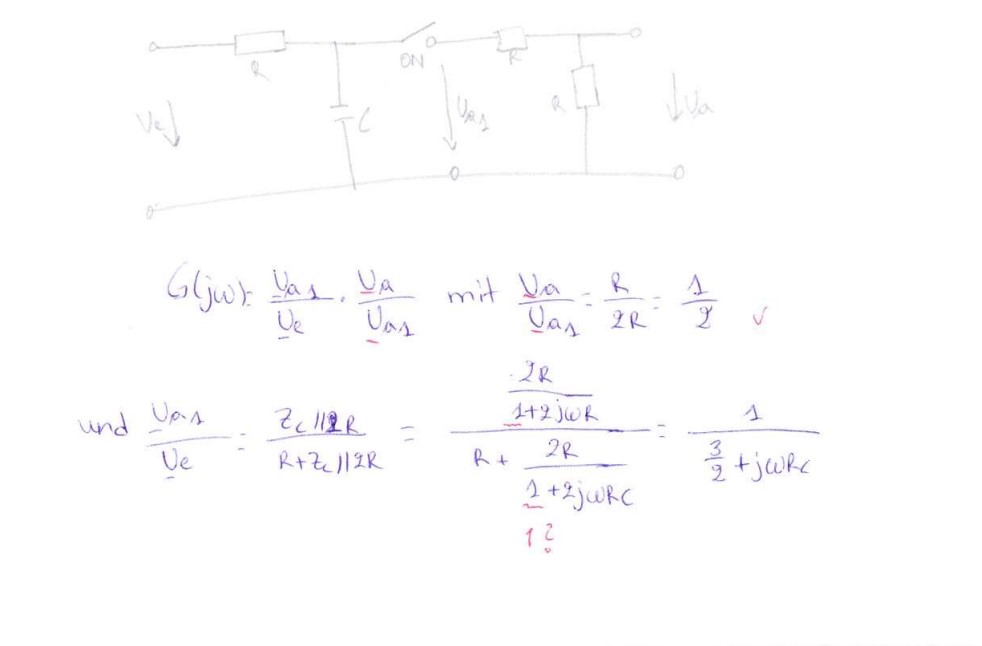 R
ON
R
R
C
Ue
Ua1
Ua
G(jω): Ua1/Ue · Ua/Ua1 mit Ua/Ua1 = R/2R = 1/2 ✓
und Ua1/Ue = Zc||2R / R+Zc||2R = 2R/1+2jωR / R + 2R/1+2jωRC = 1 / 3/2 + jωRC
1?